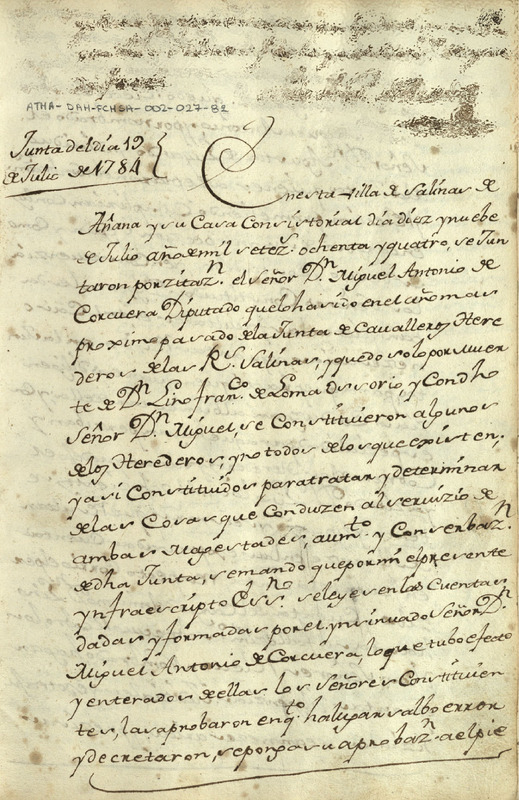 ATHA-DAH-FCHSA-002-027-82
Junta del dia 19
de Julio de 1784
En esta villa de Salinas de
Añana y su Casa Consistorial dia diez y nuebe
de Julio año de mil setezs. ochenta y quatro, se Jun
taron por zitazn. el Señor Dn. Miguel Antonio de
Corcuera Diputado que lo ha sido en el año mas
proximo pasado de la Junta de Cavalleros Here
deros de las Rs. Salinas, y quedo solo por muer
te de Dn. Lino Franco. de Loma dsorio, y Con dho
Señor Dn. Miguel, se Constituieron algunos
de los Herederos, y no todos de los que existen;
y asi Constituidos para tratar y determinar
de las Cosas que Conduzen al servizio de
ambas Magestades, aumto. y Conserbazn.
de dha Junta, se mando que por mi el presente
ynfraescripto Essno. se leyesen las Cuentas
dadas y formadas por el ynsinuado Señor Dn.
Miguel Antonio de Corcuera, lo que tubo efecto
y enterados de ellas los Señores Constituien
tes, las aprobaron en qto. ha lugar salbo error
y decretaron, se ponga su aprobazn. a el pie